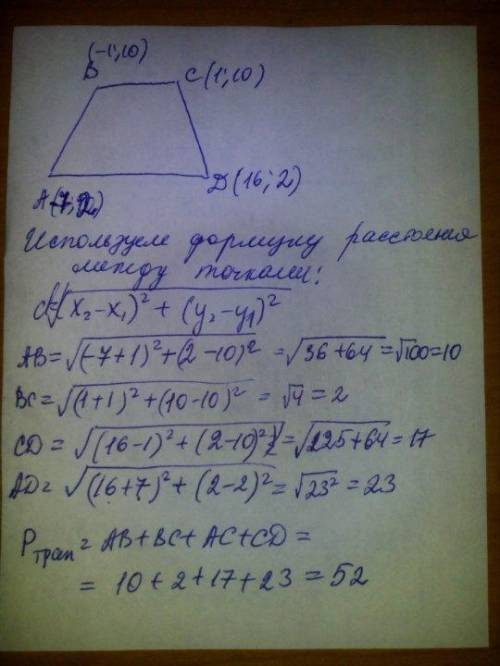 (-1;10)
B C(1;10)
A(-7;2) D(16;2)
Используем формулу расстояния
между точками:
d=√(x₂-x₁)² + (y₂-y₁)²
AB=√(-7+1)²+(2-10)² =√36+64=√100=10
BC=√(1+1)²+(10-10)² = √4=2
CD = √(16-1)²+(2-10)²=√225+64=17
AD= √(16+7)²+(2-2)²=√23²=23
Pтрап= AB+BC+AC+CD=
= 10+2+17+23=52